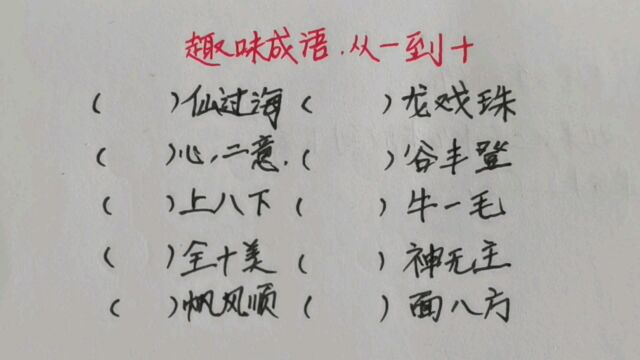 趣味成语.从一到十
( )仙过海 ( )龙戏珠
( )心二意.( )谷丰登
( )上八下 ( )牛一毛
( )全十美 ( )神无主
( )帆风顺 ( )面八方